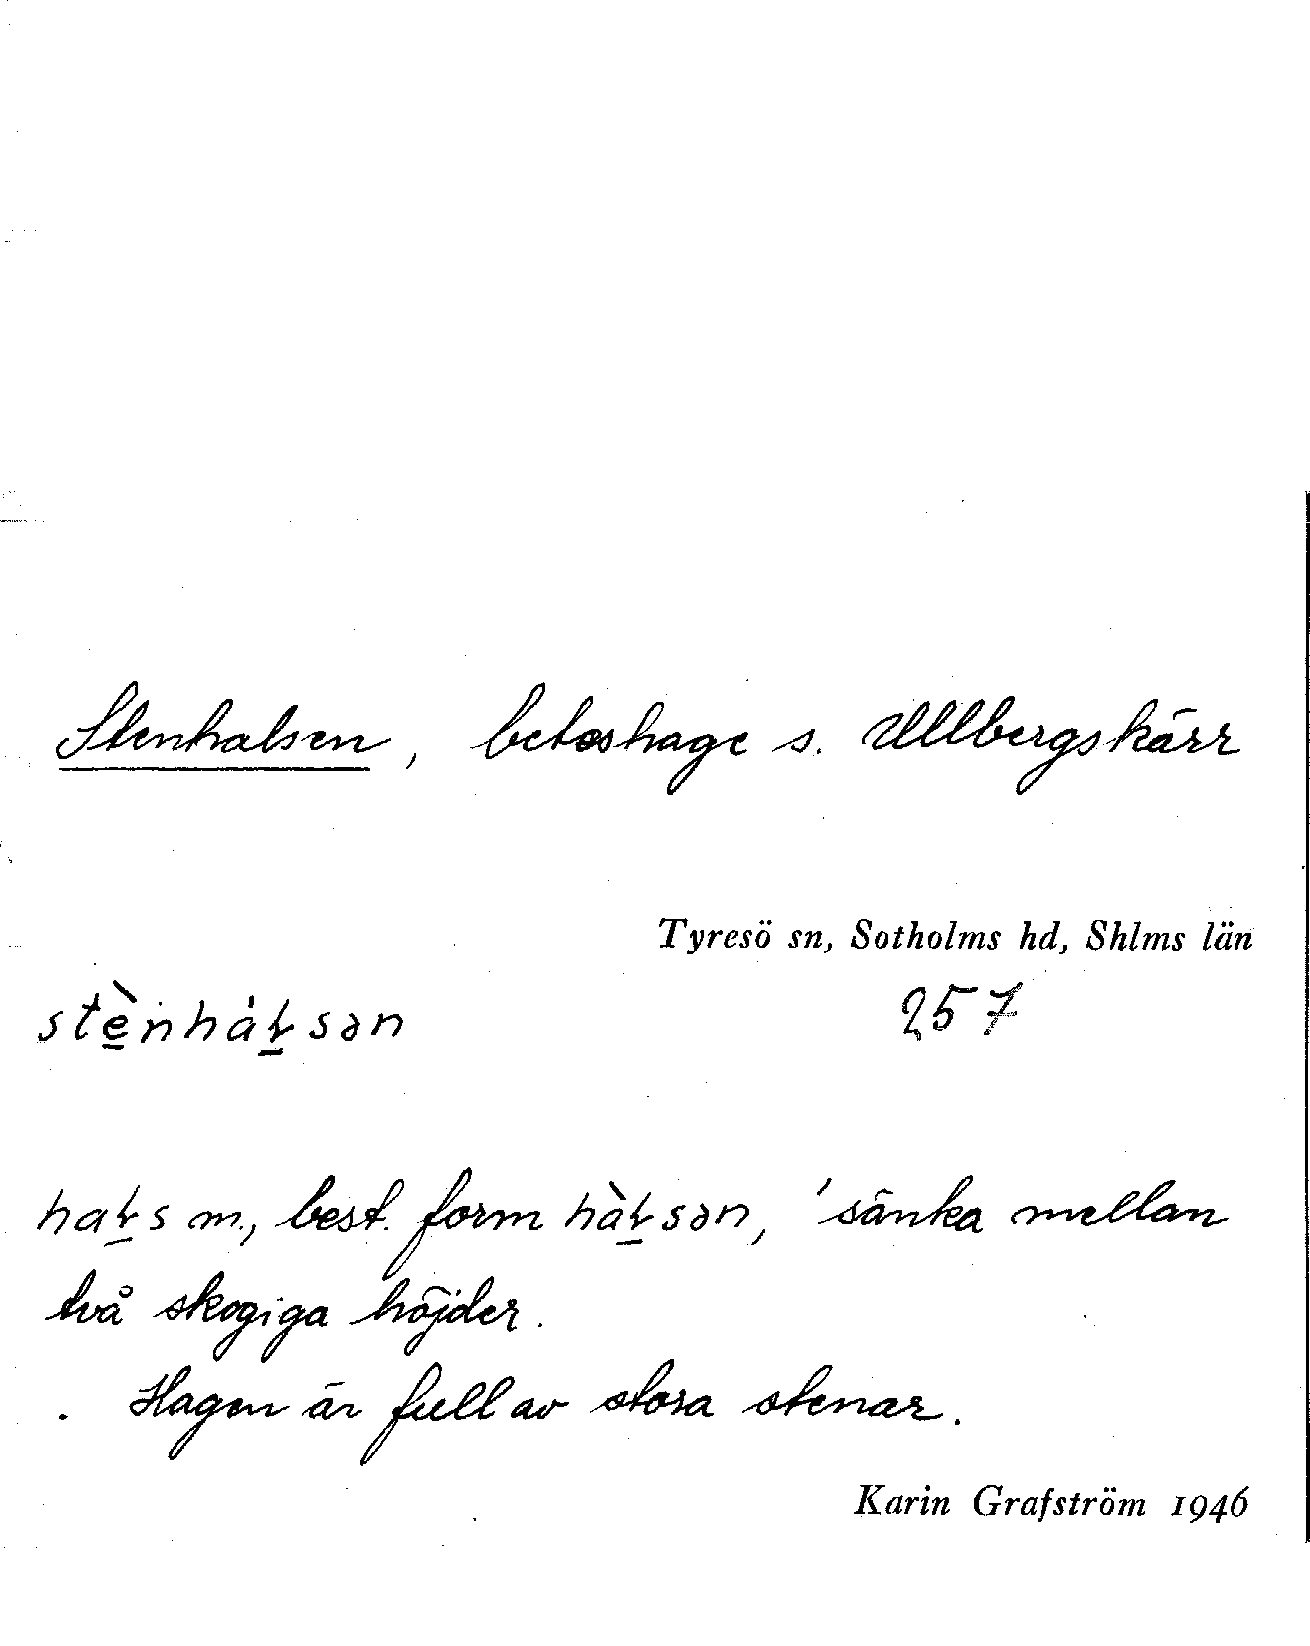 Stenhalsen, beteshage s. Ullbergskärr
Tyresö sn, Sotholms hd, Shlms län
stè̠nhàł̠sən
257
hał̠s m., best. form hàł̠sən, 'sänka mellan
två skogiga höjder.
. Hagen är full av stora stenar.
Karin Grafström 1946